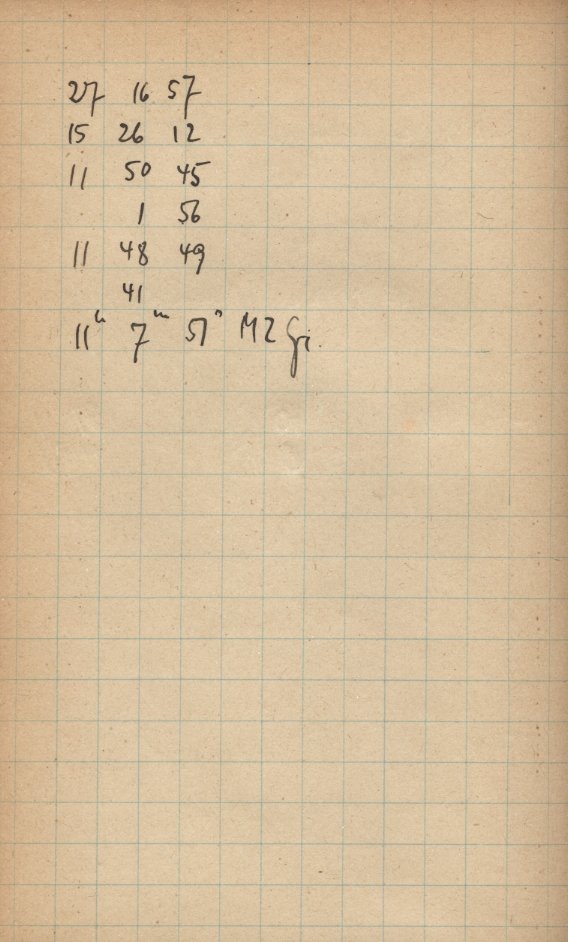 27 16 57
15 26 12
11 50 45
1 56
11 48 49
41
11ʰ 7ᵐ 51ˢ MZ Gr.